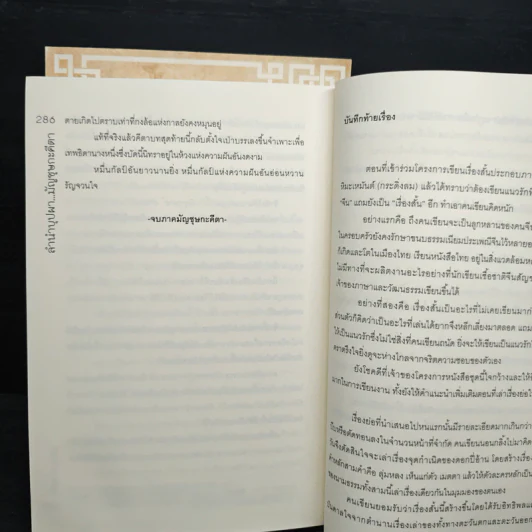 286
ลำนำบุปผา...มัญชุษกะคีตา
ตายเกิดไปตราบเท่าที่กงล้อแห่งกาลยังคงหมุนอยู่
แท้ที่จริงแล้วคีตาบทสุดท้ายนี้กลับตั้งใจเป่าบรรเลงขึ้นจำเพาะเพื่อ
เทพธิดานางหนึ่งซึ่งบัดนี้นิทราอยู่ในห้วงแห่งความฝันอันงดงาม
หมื่นกัลป์อันยาวนานยิ่ง หมื่นกัลป์แห่งความฝันอันอ่อนหวาน
รัญจวนใจ
-จบภาคมัญชุษกะคีตา-
บันทึกท้ายเรื่อง
ตอนที่เข้าร่วมโครงการเขียนเรื่องสั้นประกอบภา
หิมะเหมันต์ (กระดิ่งลม) แล้วได้ทราบว่าต้องเขียนแนวรักที่
จีน" แถมยังเป็น "เรื่องสั้น" อีก ทำเอาคนเขียนคิดหนัก
อย่างแรกคือ ถึงคนเขียนจะเป็นลูกหลานของคนจีน
ในครอบครัวยังคงรักษาขนบธรรมเนียมประเพณีจีนไว้หลายอ
ก็เกิดและโตในเมืองไทย เรียนหนังสือไทย อยู่ในสิ่งแวดล้อมท
ไม่มีทางที่จะผลิตงานอะไรอย่างที่นักเขียนเชื้อชาติจีนสัญช
เจ้าของภาษาและวัฒนธรรมเขียนขึ้นได้
อย่างที่สองคือ เรื่องสั้นเป็นอะไรที่ไม่เคยเขียนมาก่
ส่วนตัวก็คิดว่าเป็นอะไรที่เล่นได้ยากจึงหลีกเลี่ยงมาตลอด แถม
ให้เป็นแนวรักซึ่งไม่ใช่สิ่งที่คนเขียนถนัด ยิ่งจะให้เขียนเป็นแนวรัก
ตราตรึงใจยิ่งดูจะห่างไกลจากจริตความชอบของตัวเอง
ยังโชคดีที่เจ้าของโครงการหนังสือชุดนี้ใจกว้างและให้
มากในการเขียนงาน ทั้งยังให้คำแนะนำเพิ่มเติมตอนที่เล่าเรื่องย่อใ
เรื่องย่อที่นำเสนอไปหนแรกนั้นมีรายละเอียดมากเกินกว่า
หรือตัดทอนลงในจำนวนหน้าที่จำกัด คนเขียนนอนกลิ้งไปมาคิด
จึงตัดสินใจจะเล่าเรื่องจุดกำเนิดของดอกปี่อ้าน โดยสร้างเรื่อง
คำหลักสามคำคือ ลุ่มหลง เห็นแก่ตัว เมตตา แล้วให้ตัวละครหลักเป็น
ของนามธรรมทั้งสามนี้เล่าเรื่องเดียวกันในมุมมองของตนเอง
คนเขียนยอมรับว่าเรื่องสั้นนี้สร้างขึ้นโดยได้รับอิทธิพลแ
บันดาลใจจากตำนานเรื่องเล่าของทั้งทางตะวันตกและตะวันออก